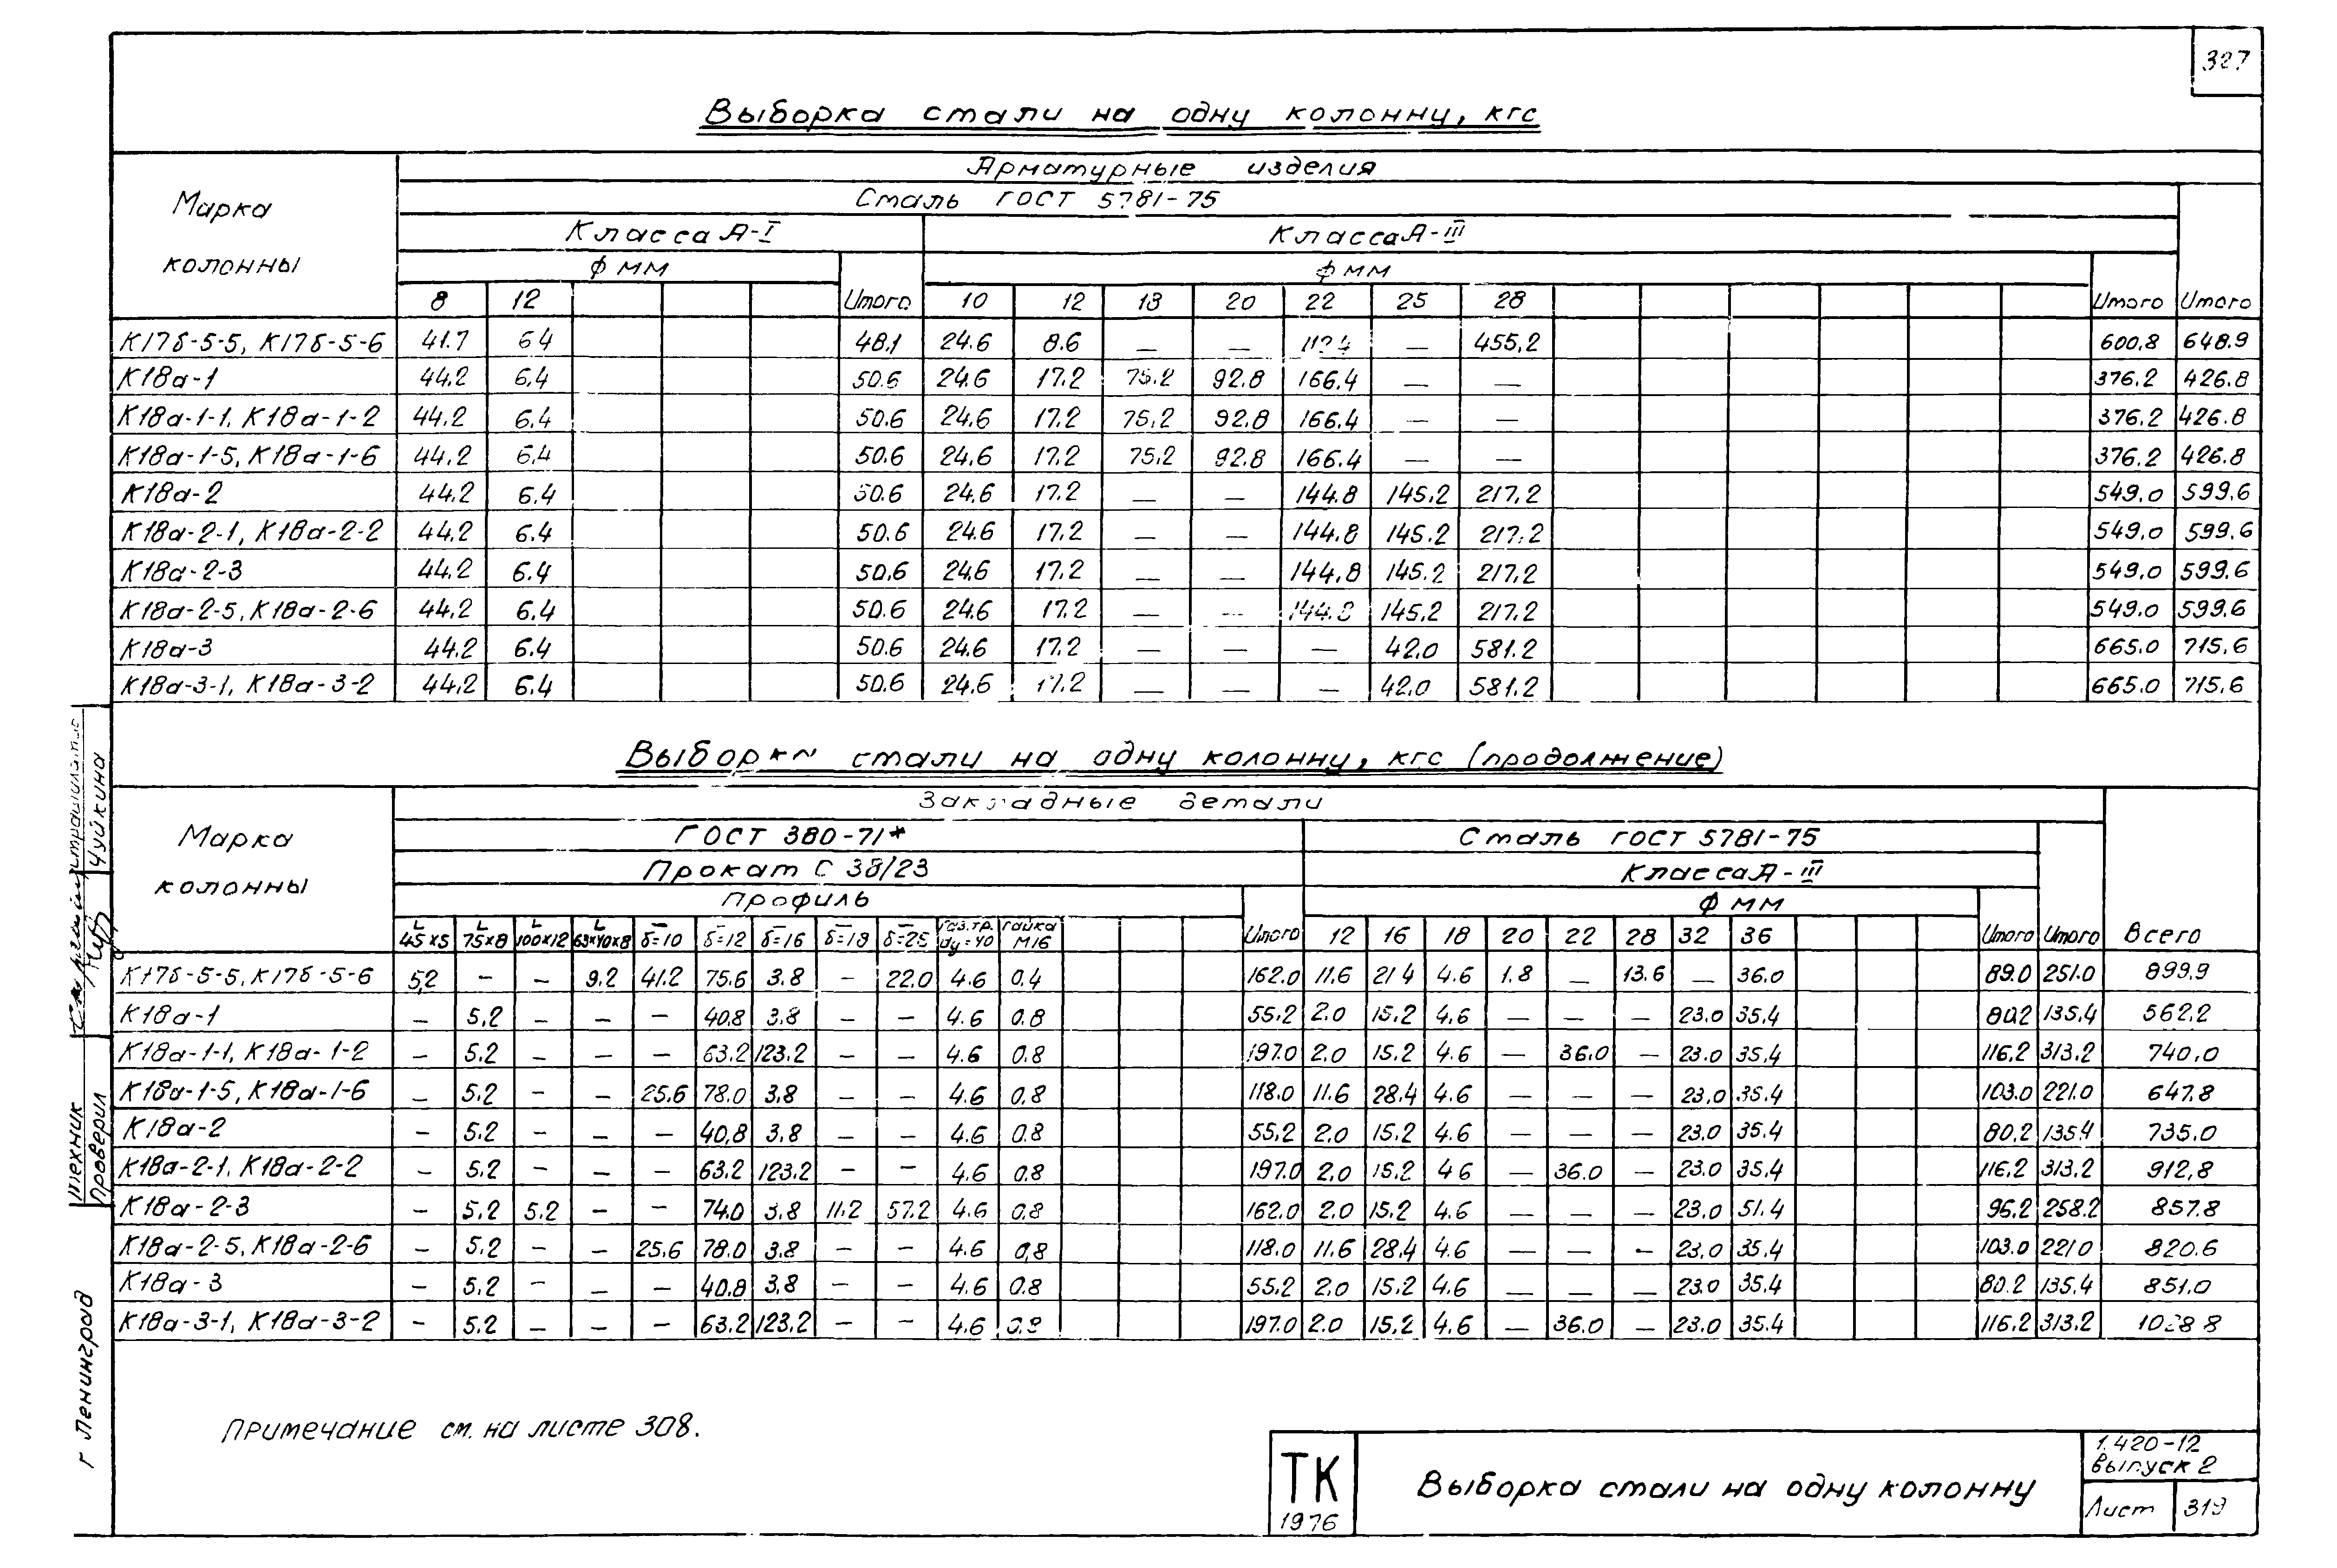 327
Выборка стали на одну колонну, кгс
Марка колонны
Арматурные изделия
Сталь ГОСТ 5781-75
Класса А-I
Класса А-III
ф мм
ф мм
8 12 Итого 10 12 18 20 22 25 28 Итого Итого
К17б-5-5, К17б-5-6 41.7 6.4 48.1 24.6 8.6 — — — 455.2 600.8 648.9
К18а-1 44.2 6.4 50.6 24.6 17.2 75.2 92.8 166.4 — — 376.2 426.8
К18а-1-1, К18а-1-2 44.2 6.4 50.6 24.6 17.2 75.2 92.8 166.4 — — 376.2 426.8
К18а-1-5, К18а-1-6 44.2 6.4 50.6 24.6 17.2 75.2 92.8 166.4 — — 376.2 426.8
К18а-2 44.2 6.4 50.6 24.6 17.2 — — 144.8 145.2 217.2 549.0 599.6
К18а-2-1, К18а-2-2 44.2 6.4 50.6 24.6 17.2 — — 144.8 145.2 217.2 549.0 599.6
К18а-2-3 44.2 6.4 50.6 24.6 17.2 — — 144.8 145.2 217.2 549.0 599.6
К18а-2-5, К18а-2-6 44.2 6.4 50.6 24.6 17.2 — — 144.8 145.2 217.2 549.0 599.6
К18а-3 44.2 6.4 50.6 24.6 17.2 — — — 42.0 581.2 665.0 715.6
К18а-3-1, К18а-3-2 44.2 6.4 50.6 24.6 17.2 — — — 42.0 581.2 665.0 715.6
Выборка стали на одну колонну, кгс (продолжение)
Марка колонны
Закладные детали
ГОСТ 380-71*
Сталь ГОСТ 5781-75
Прокат С 38/23
Класса А-III
Профиль
ф мм
L 45×5 L 75×8 L 100×12 L 63×40×8 δ=10 δ=12 δ=16 δ=18 δ=25 Газ.тр. dy=40 Гайка М16 Итого 12 16 18 20 22 28 32 36 Итого Итого Всего
К17б-5-5, К17б-5-6 5.2 — — 9.2 41.2 75.6 3.8 — 22.0 4.6 0.4 162.0 11.6 21.4 4.6 1.8 — 13.6 — 36.0 89.0 251.0 899.9
К18а-1 — 5.2 — — — 40.8 3.8 — — 4.6 0.8 55.2 2.0 15.2 4.6 — — — 23.0 35.4 80.2 135.4 562.2
К18а-1-1, К18а-1-2 — 5.2 — — — 63.2 123.2 — — 4.6 0.8 197.0 2.0 15.2 4.6 — 36.0 — 23.0 35.4 116.2 313.2 740.0
К18а-1-5, К18а-1-6 — 5.2 — — 25.6 78.0 3.8 — — 4.6 0.8 118.0 11.6 28.4 4.6 — — — 23.0 35.4 103.0 221.0 647.8
К18а-2 — 5.2 — — — 40.8 3.8 — — 4.6 0.8 55.2 2.0 15.2 4.6 — — — 23.0 35.4 80.2 135.4 735.0
К18а-2-1, К18а-2-2 — 5.2 — — — 63.2 123.2 — — 4.6 0.8 197.0 2.0 15.2 4.6 — 36.0 — 23.0 35.4 116.2 313.2 912.8
К18а-2-3 — 5.2 5.2 — — 74.0 3.8 11.2 57.2 4.6 0.8 162.0 2.0 15.2 4.6 — — — 23.0 51.4 96.2 258.2 857.8
К18а-2-5, К18а-2-6 — 5.2 — — 25.6 78.0 3.8 — — 4.6 0.8 118.0 11.6 28.4 4.6 — — — 23.0 35.4 103.0 221.0 820.6
К18а-3 — 5.2 — — — 40.8 3.8 — — 4.6 0.8 55.2 2.0 15.2 4.6 — — — 23.0 35.4 80.2 135.4 851.0
К18а-3-1, К18а-3-2 — 5.2 — — — 63.2 123.2 — — 4.6 0.8 197.0 2.0 15.2 4.6 — 36.0 — 23.0 35.4 116.2 313.2 1028.8
Примечание см. на листе 308.
ТК
1976
Выборка стали на одну колонну
1.420-12
выпуск 2
Лист 319
Чуйкина
Техник
Проверил
г Ленинград